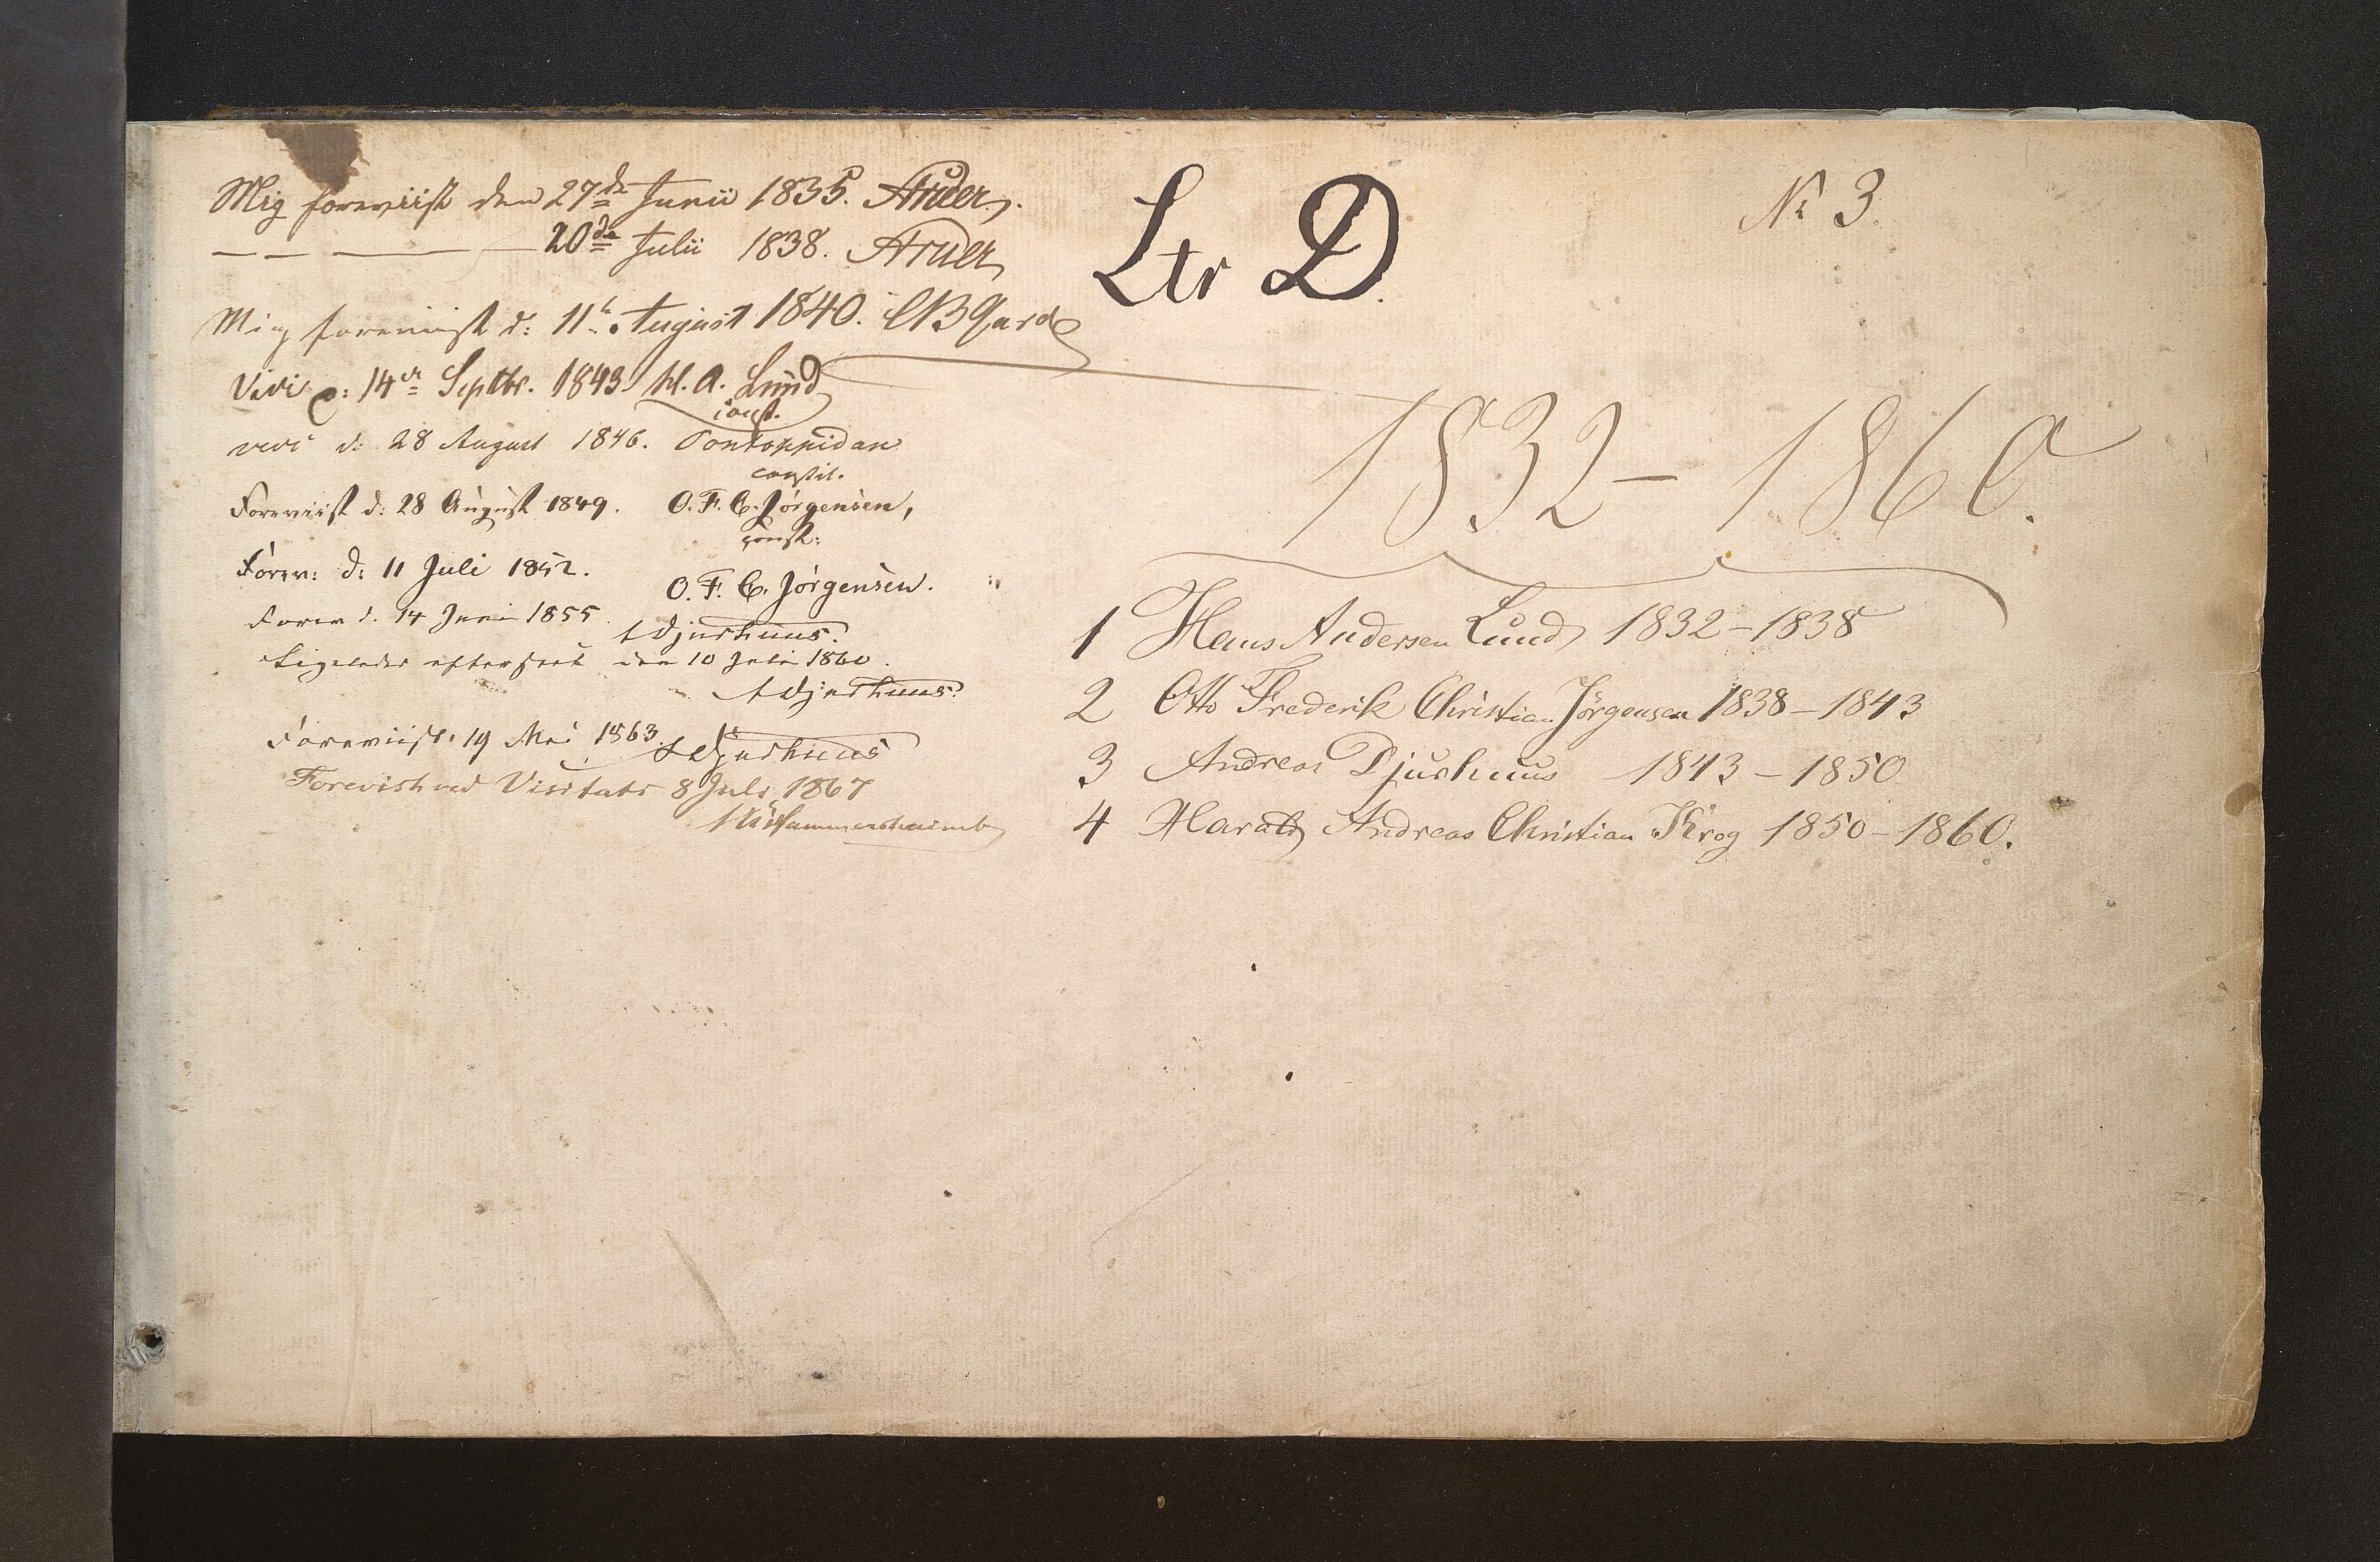 Mig foreviist den 27de Junii 1835. Aruer.
— — — — 20de Julii 1838. Aruer
Mig foreviist d: 11te August 1840.
Vidi d: 14de Septbr. 1843 H. A. Lund
const.
vidi d: 28 August 1846. Pontoppidan
constit.
Foreviist d: 28 August 1849. O. F. C. Jørgensen,
const:
Forev: d: 11 Juli 1852.
O. F. C. Jørgensen.
Forev d. 14 Juni 1855.
ADjurhuus.
Ligeledes efterseet den 10 Juli 1860.
ADjurhuus.
Foreviist. 19 Mai 1863. ADjurhuus
Forevist ved Visitats 8 Juli 1867
Hammershaimb
Ltr D.
No 3.
1832 – 1860.
1 Hans Andersen Lund 1832 – 1838
2 Otto Frederik Christian Jörgensen 1838 – 1843
3 Andreas Djurhuus 1843 – 1850
4 Harald Andreas Christian Krog 1850 – 1860.